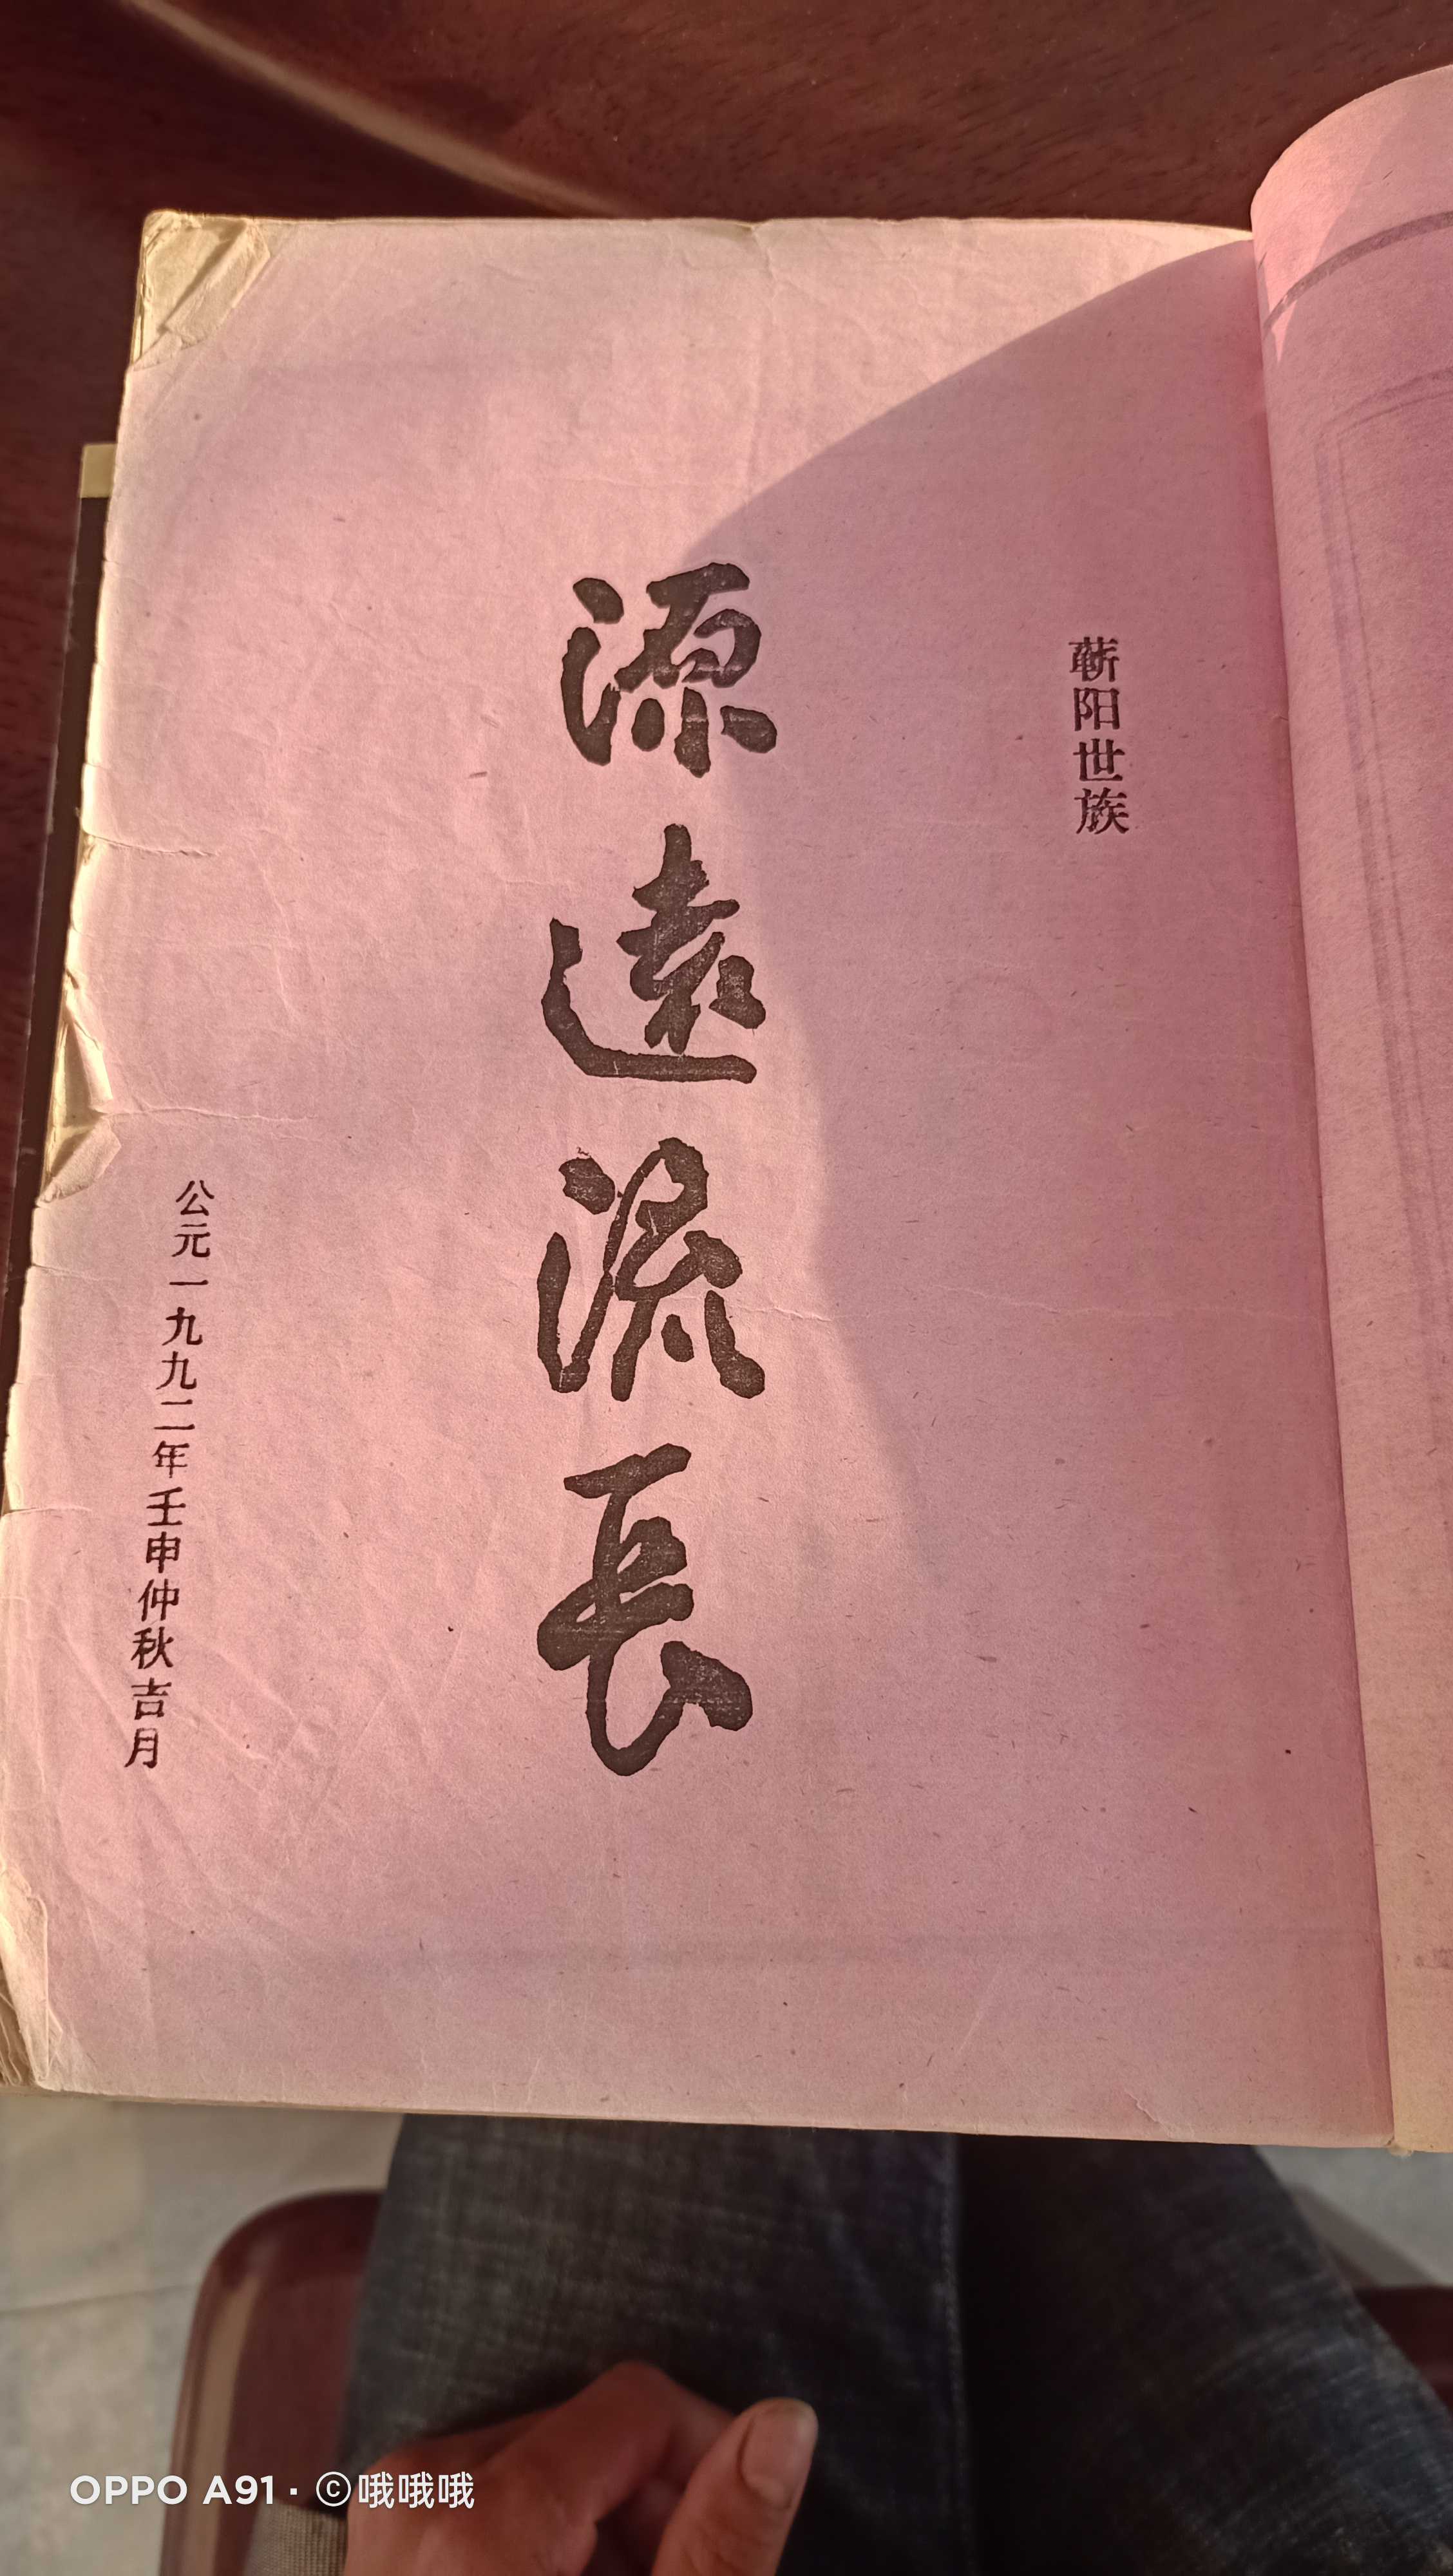 蕲阳世族
源遠流長
公元一九九二年壬申仲秋吉月
OPPO A91 · ©哦哦哦